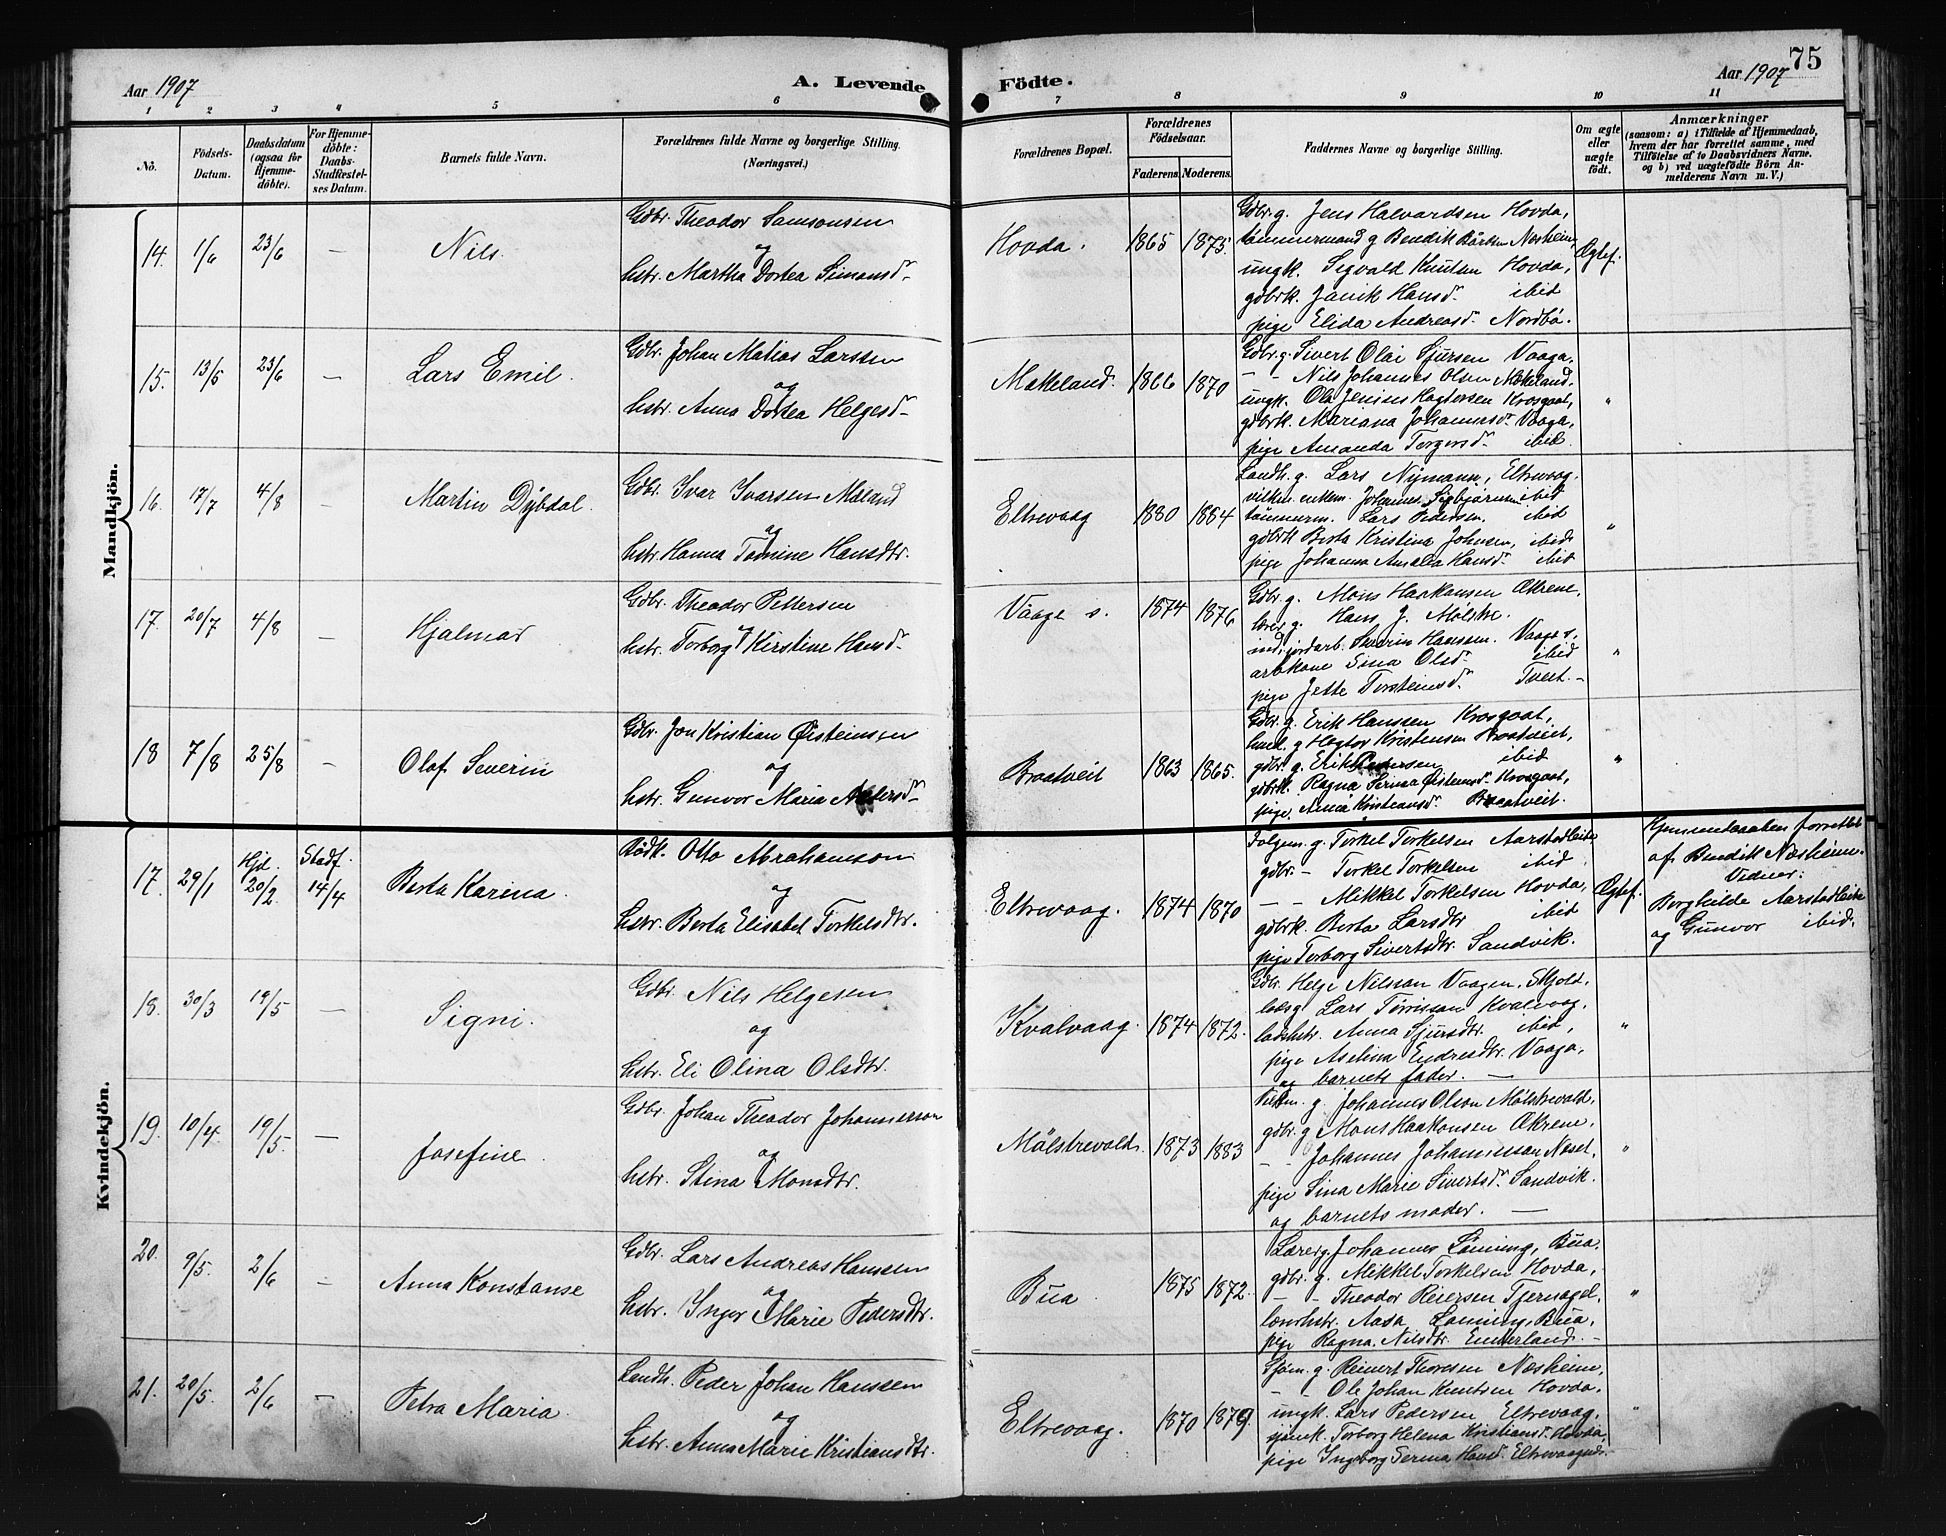 Aar 1907
A. Levende
Födte.
Aar 1907
75
1 2 3 4 5 6 7 8 9 10 11
No.
Födsels-
Datum.
Daabsdatum
(ogsaa for
Hjemme-
döbte).
For Hjemme-
döbte:
Daabs-
Stadfæstel-
ses Datum.
Barnets fulde Navn.
Forældrenes fulde Navne og borgerlige Stilling.
(Næringsvei.)
Forældrenes Bopæl.
Forældrenes
Födselsaar.
Faderens.
Moderens.
Faddernes Navne og borgerlige Stilling.
Om ægte
eller
uægte
födt.
Anmærkninger
(saasom: a) i Tilfælde af Hjemmedaab,
hvem der har forrettet samme, med
Tilföielse af to Daabsvidners Navne.
og b) ved uægtefödte Börn An-
melderens Navn m. V.)
Mandkjön.
14. 1/6 23/6 — Nils.
Gdbr. Theodor Samsonsen
og
hstr. Martha Dortea Simonsdr
Hovda. 1865 1875.
Gdbr. g. Jens Halvardsen Hovda,
tömmermand g Bendik Nesheim,
ungk. Sigvald Knutsen Hovda,
gdbrk. Janik Hansdr ibid
pige Elida Andreasdr Nordbö.
Ægtef.
15. 13/6 23/6 — Lars Emil.
Gdbr. Johan Matias Larssen
og
hstr. Anna Dortea Helgesdr
Mokeland. 1866 1870
Gdbr. g. Sivert Olai Sjursen Vaaga,
— — Nils Johannes Olsen Mokeland,
ungk. Ola Jenines Hagtorsen Krosgaat,
gdbrk. Mariana Johannesdr Vaaga,
pige Amanda Torgersdr ibid.
"
16. 17/7 4/8 — Martin Dybdal.
Gdbr. Ivar Ivarsen Mæland
og
hstr. Hanna Tomine Hansdtr.
Eltrevaag 1880 1884
Landh. g. Lars Nymann, Eltrevaag.
Johannes Sigbjörnsen ibid
tömmerm. Lars Pedersen, ibid
gdbrk Berta Kristina Johnsen, ibid.
pige Johanna Amalia Hansdr ibid
"
17. 20/7 4/8 — Hjalmar
Gdbr. Theodor Pettersen
og
hstr. Torborg Kirstine Hansdr
Vaage s. 1874 1876
Gdbr. g. Mons Haakonsen Økrene,
lærer g. Hans J. Mølstre.
jordarb. Severin Hanssen. Vaage s.
arbkone Sina Olsdr ibid
pige Jette Torsteinsdr Tveit. —
"
18 7/8 25/8 — Olaf Severin
Gdbr. Jon Kristian Øisteinsen
og
hstr. Gunvor Maria
Braatveit 1863 1865.
Gdbr. g. Erik Hanssen Krosgaat,
g Hagtor Kristensen Braatveit,
gdbr. g. Erik Pedersen ibid
gdbrk. Ragna Serina Øisteinsdr Krosgaat,
pige. Anna Kristiansdr Braatveit.
"
Kvindekjön.
17. 29/1 Hjd. 20/2 Stadf. 14/4 Berta Karina.
Bödk. Otto Abrahamson
og
hstr. Berta Elisabet Torkelsdtr.
Eltrevaag. 1874 1870
Folgem. g. Torkel Torkelsen Aarstadleite
gdbr. — Torkel Torkelsen ibid
— — Mikkel Torkelsen Hovda,
gdbrk. Berta Larsdtr ibid
pige Torborg Sivertsdtr. Sandvik.
Ægtef.
Hjemmedaaben forrettet
af Bendik Næsheim.
Vidner:
Borghilde Aarstadleite
og Gunvor ibid.
18. 30/3 19/5 — Signi.
Gdbr. Nils Helgesen
og
hstr. Eli Olina Olsdtr.
Kvalvaag. 1874 1872.
Gdbr. Helge Nilsson Vaagen, Skjold,
Lars Tørrisson Kvalvaag,
Anna Sjursdtr. ibid,
pige Aselina Endresdtr. Vaaga,
og barnets fader. —
"
19. 10/4 19/5 — Josefine.
Gdbr. Johan Theodor Johannesson
og
hstr. Stina Monsdtr.
Mölstrevold. 1873 1883
g. Johannes Olson Mölstrevold,
gdbr. g Mons Haakonsen Økrene,
— — Johannes Johannesson Neset,
pige Sina Marie Sivertsdr Sandvik.
og barnets moder. —
"
20. 9/5. 2/6 — Anna Konstanse
Gdbr. Lars Andreas Hanssen
og
hstr. Inger Marie Pedersdtr.
Bua 1875 1872.
Lærer g. Johannes Lönning, Bua.
gdbr. g. Mikkel Torkelsen Hovda,
— — Theodor Reiersen Tjernagel,
Aasa Lönning, Bua,
pige Ragna Nilsdtr. Emberland. —
"
21. 20/5. 2/6 — Petra Maria.
Landh. Peder Johan Hanssen
og
hstr. Anna Marie Kristiansdtr.
Eltrevaag. 1870 1879.
Sjöm. g. Reinert Thorsen Næsheim,
— — Ole Johan Knutsen Hovda,
ungk. Lars Pedersen Eltrevaag,
Torborg Helena Kristiansdr Hovda,
pige Ingeborg Serina Hansdr Eltrevaag.
"